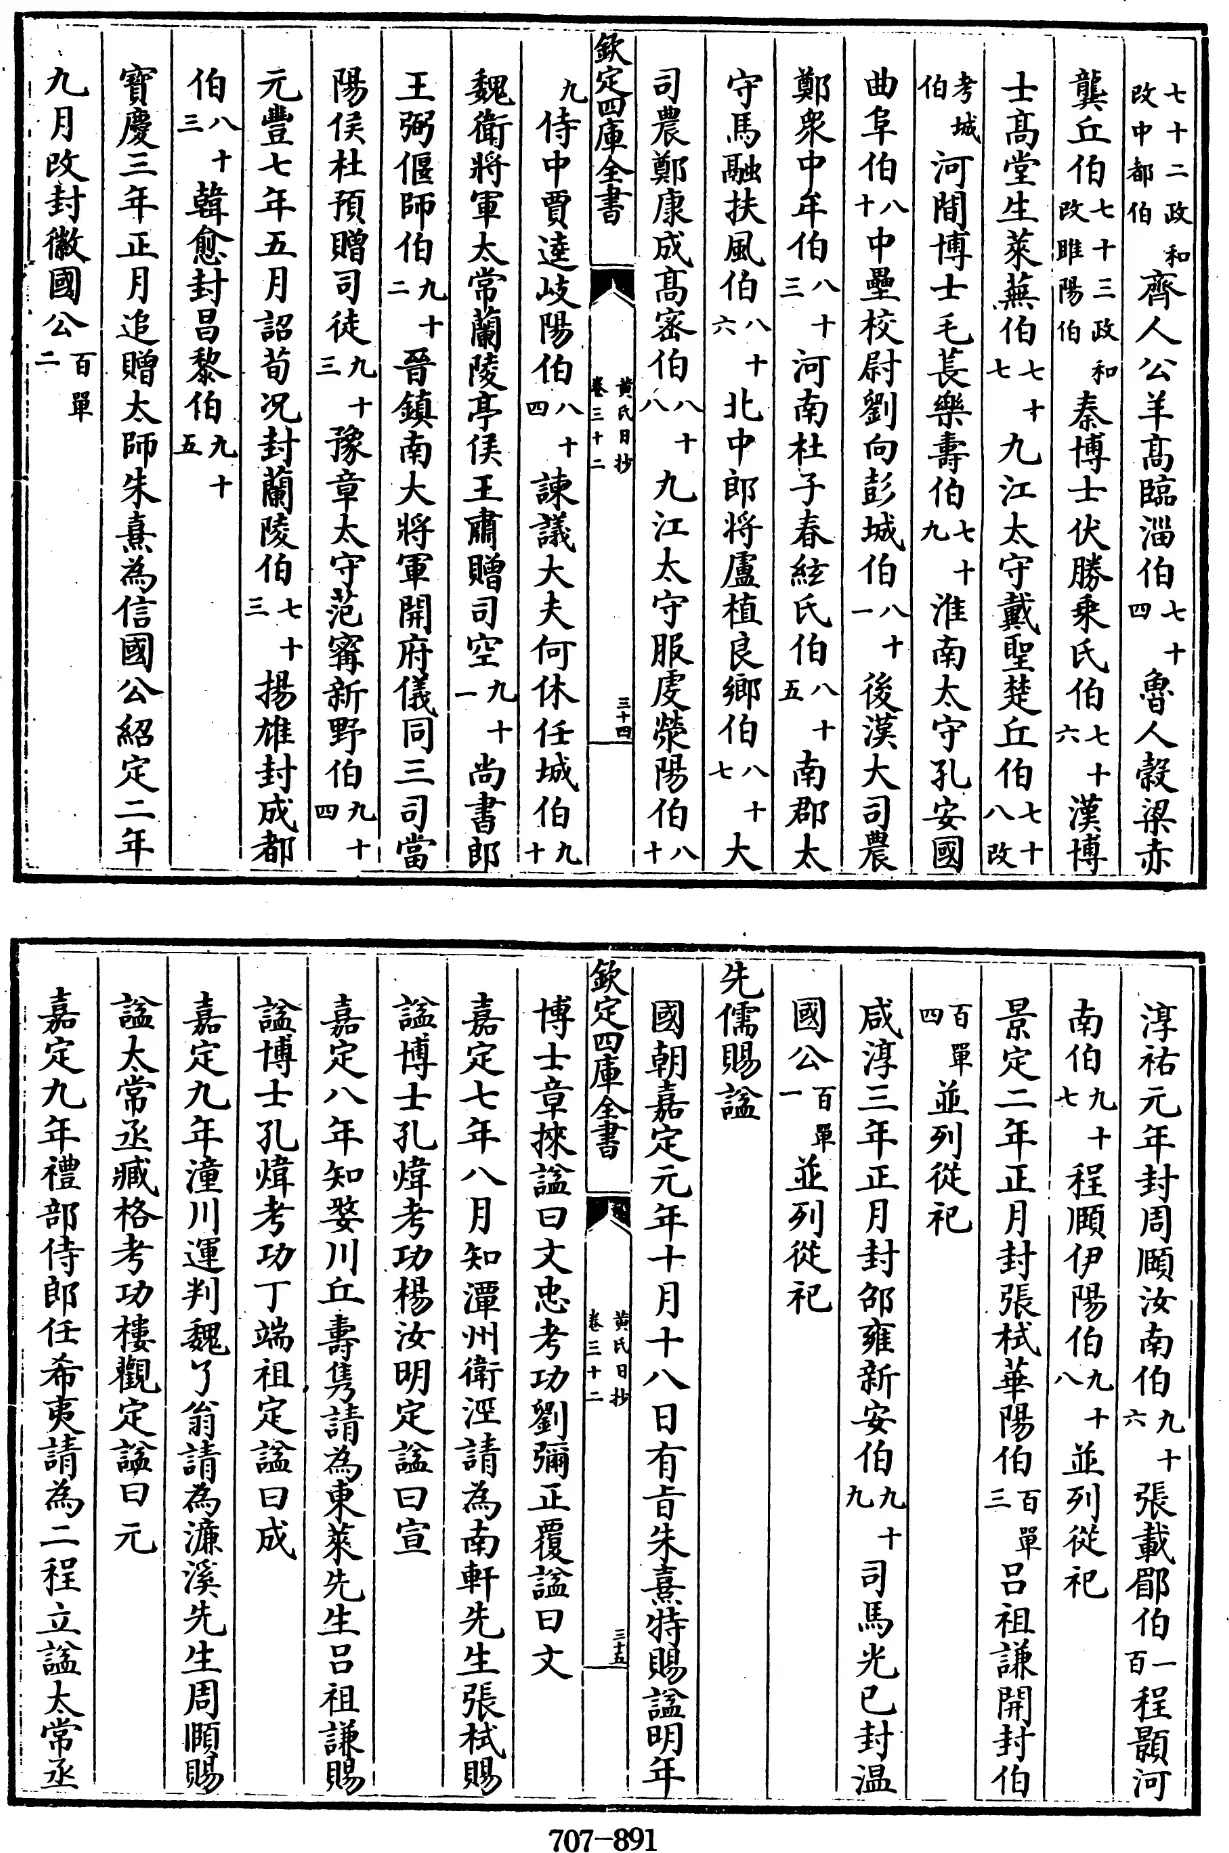 七十二政和改中都伯齊人公羊髙臨淄伯七十四魯人穀梁赤
龔丘伯七十三政和改雎陽伯秦博士伏勝乘氏伯七十六漢博
士髙堂生萊蕪伯七十七九江太守戴聖楚丘伯七十八改
考城伯河間博士毛萇樂壽伯七十九淮南太守孔安國
曲阜伯八十中壘校尉劉向彭城伯八十一後漢大司農
鄭衆中牟伯八十三河南杜子春絃氏伯八十五南郡太
守馬融扶風伯八十六北中郎将盧植良鄉伯八十七大
司農鄭康成髙密伯八十八九江太守服虔滎陽伯八十
欽定四庫全書
黄氏日抄
卷三十二
三十四
九侍中賈逵岐陽伯八十四諫議大夫何休任城伯九十
魏衛將軍太常蘭陵亭侯王肅贈司空九十一尚書郎
王弼偃師伯九十二晉鎮南大將軍開府儀同三司當
陽侯杜預贈司徒九十三豫章太守范寗新野伯九十四
元豐七年五月詔荀况封蘭陵伯七十三揚雄封成都
伯八十三韓愈封昌黎伯九十五
寶慶三年正月追贈太師朱熹為信國公紹定二年
九月改封徽國公百單二
淳祐元年封周頥汝南伯九十六張載郿伯一百程顥河
南伯九十七程頥伊陽伯九十八並列從祀
景定二年正月封張栻華陽伯百單三吕祖謙開封伯
百單四並列從祀
咸淳三年正月封邵雍新安伯九十九司馬光已封溫
國公百單一並列從祀
先儒賜諡
國朝嘉定元年十月十八日有㫖朱熹特賜諡明年
欽定四庫全書
黄氏日抄
卷三十二
三十五
博士章徠諡曰文忠考功劉彌正覆諡曰文
嘉定七年八月知潭州衛涇請為南軒先生張栻賜
諡博士孔煒考功楊汝明定諡曰宣
嘉定八年知婺川丘壽雋請為東萊先生吕祖謙賜
諡博士孔煒考功丁端祖定諡曰成
嘉定九年潼川運判魏了翁請為濂溪先生周頥賜
諡太常丞臧格考功樓觀定諡曰元
嘉定九年禮部侍郎任希夷請為二程立諡太常丞
707-891